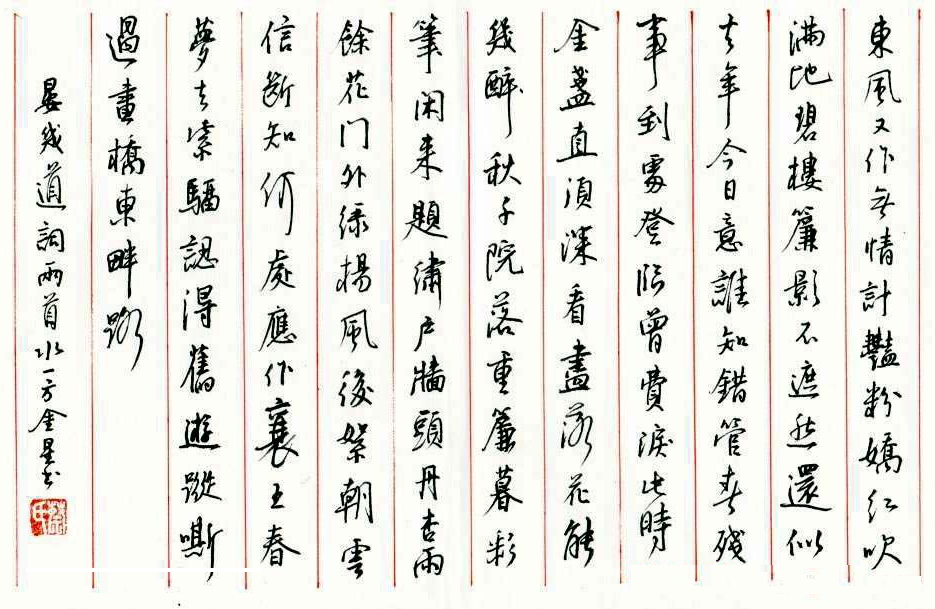 東風又作無情計豔粉嬌紅吹
滿地碧樓簾影不遮愁還似
去年今日意誰知錯管春殘
事到處登臨曾費淚此時
金盞直須深看盡落花能
幾醉秋千院落重簾暮彩
筆閑来題繡戶牆頭丹杏雨
餘花门外綠楊風後絮朝雲
信斷知何處應作襄王春
夢去紫騮認得舊遊蹤嘶
過畫橋東畔路
晏幾道詞兩首水一方金星书